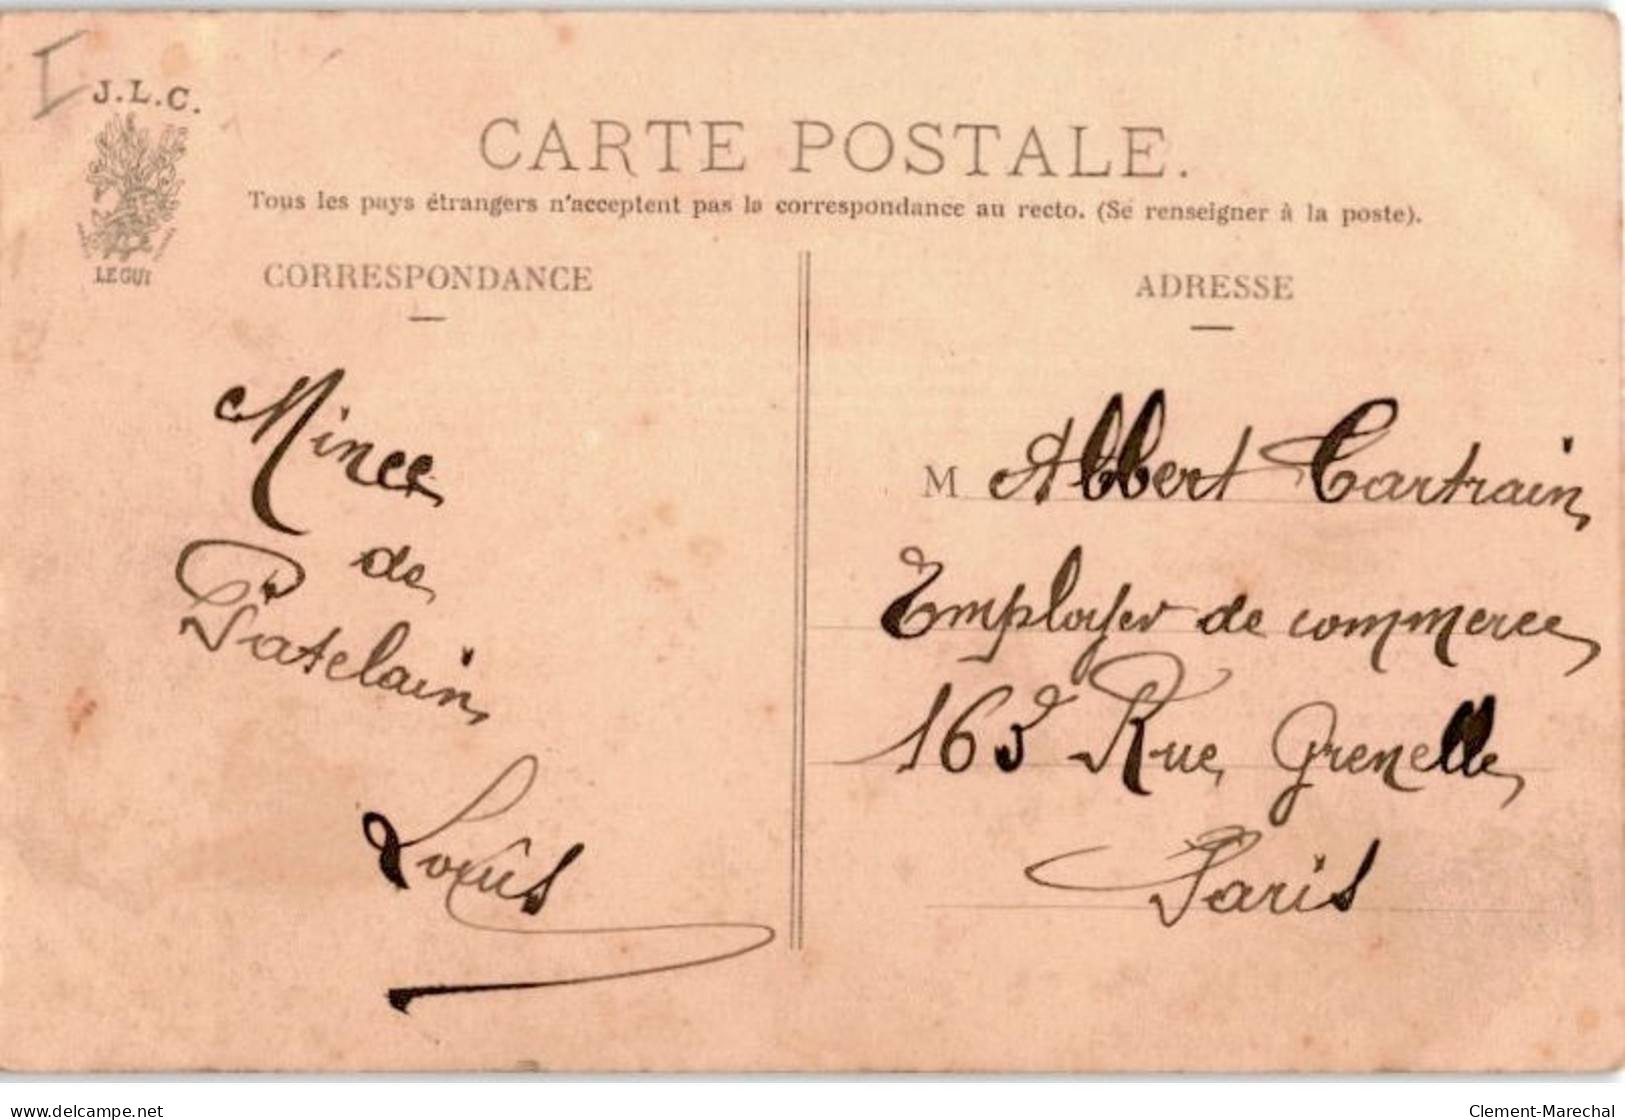 J.L.C.
LE GUI
CARTE POSTALE.
Tous les pays étrangers n'acceptent pas la correspondance au recto. (Se renseigner à la poste).
CORRESPONDANCE
Mince
de
Patelain
Louis
ADRESSE
M Albert Cartrain
Employer de commerce
163 Rue Grenelle
Paris
delcampe.net
Clement-Marechal